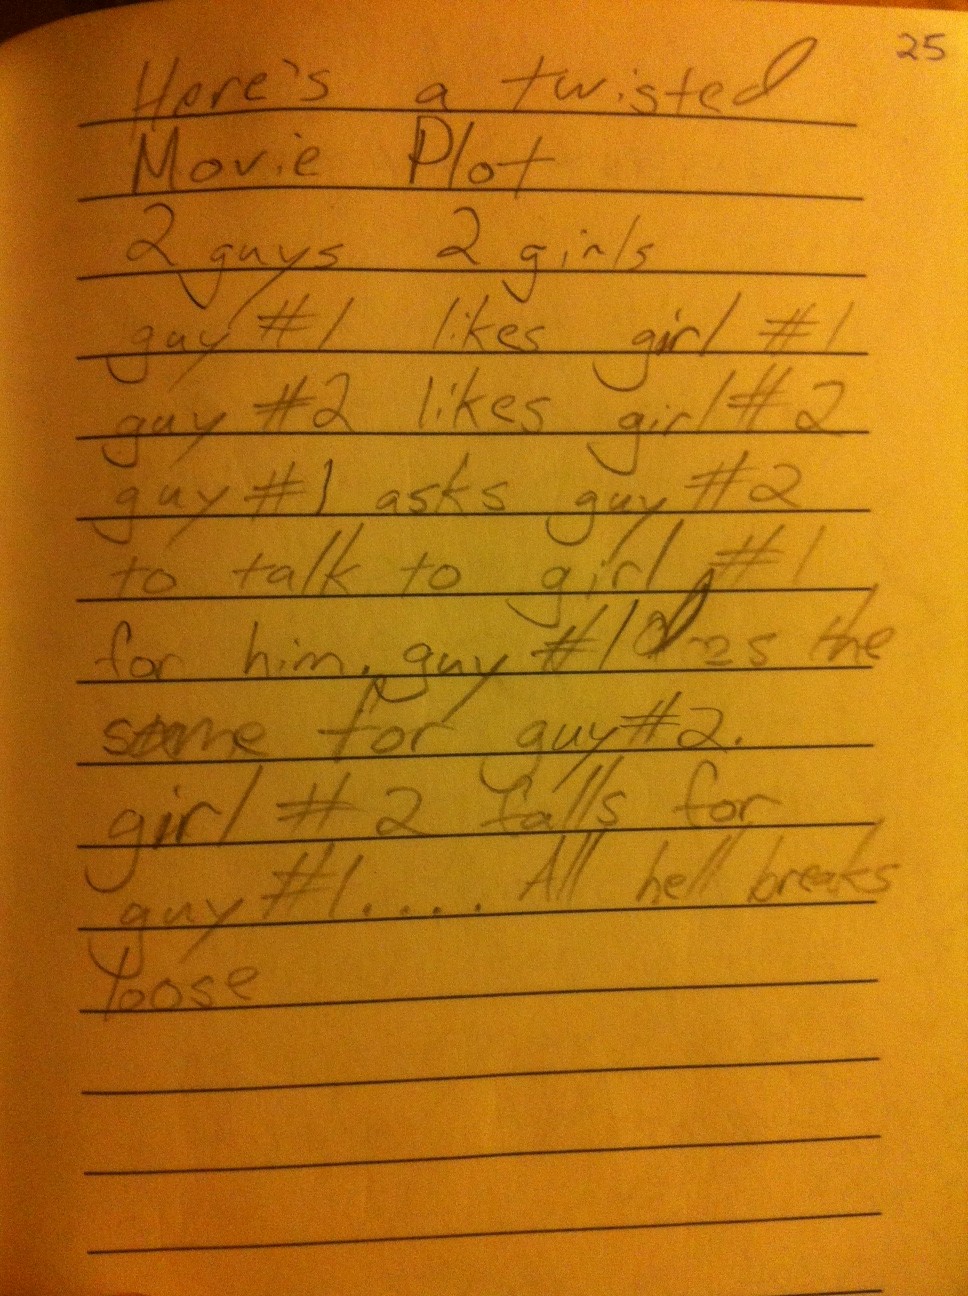 25
Here's a twisted
Movie Plot
2 guys 2 girls
guy #1 likes girl #1
guy #2 likes girl #2
guy #1 asks guy #2
to talk to girl #1
for him. guy #1 does the
same for guy #2.
girl #2 falls for
guy #1.... All hell breaks
loose